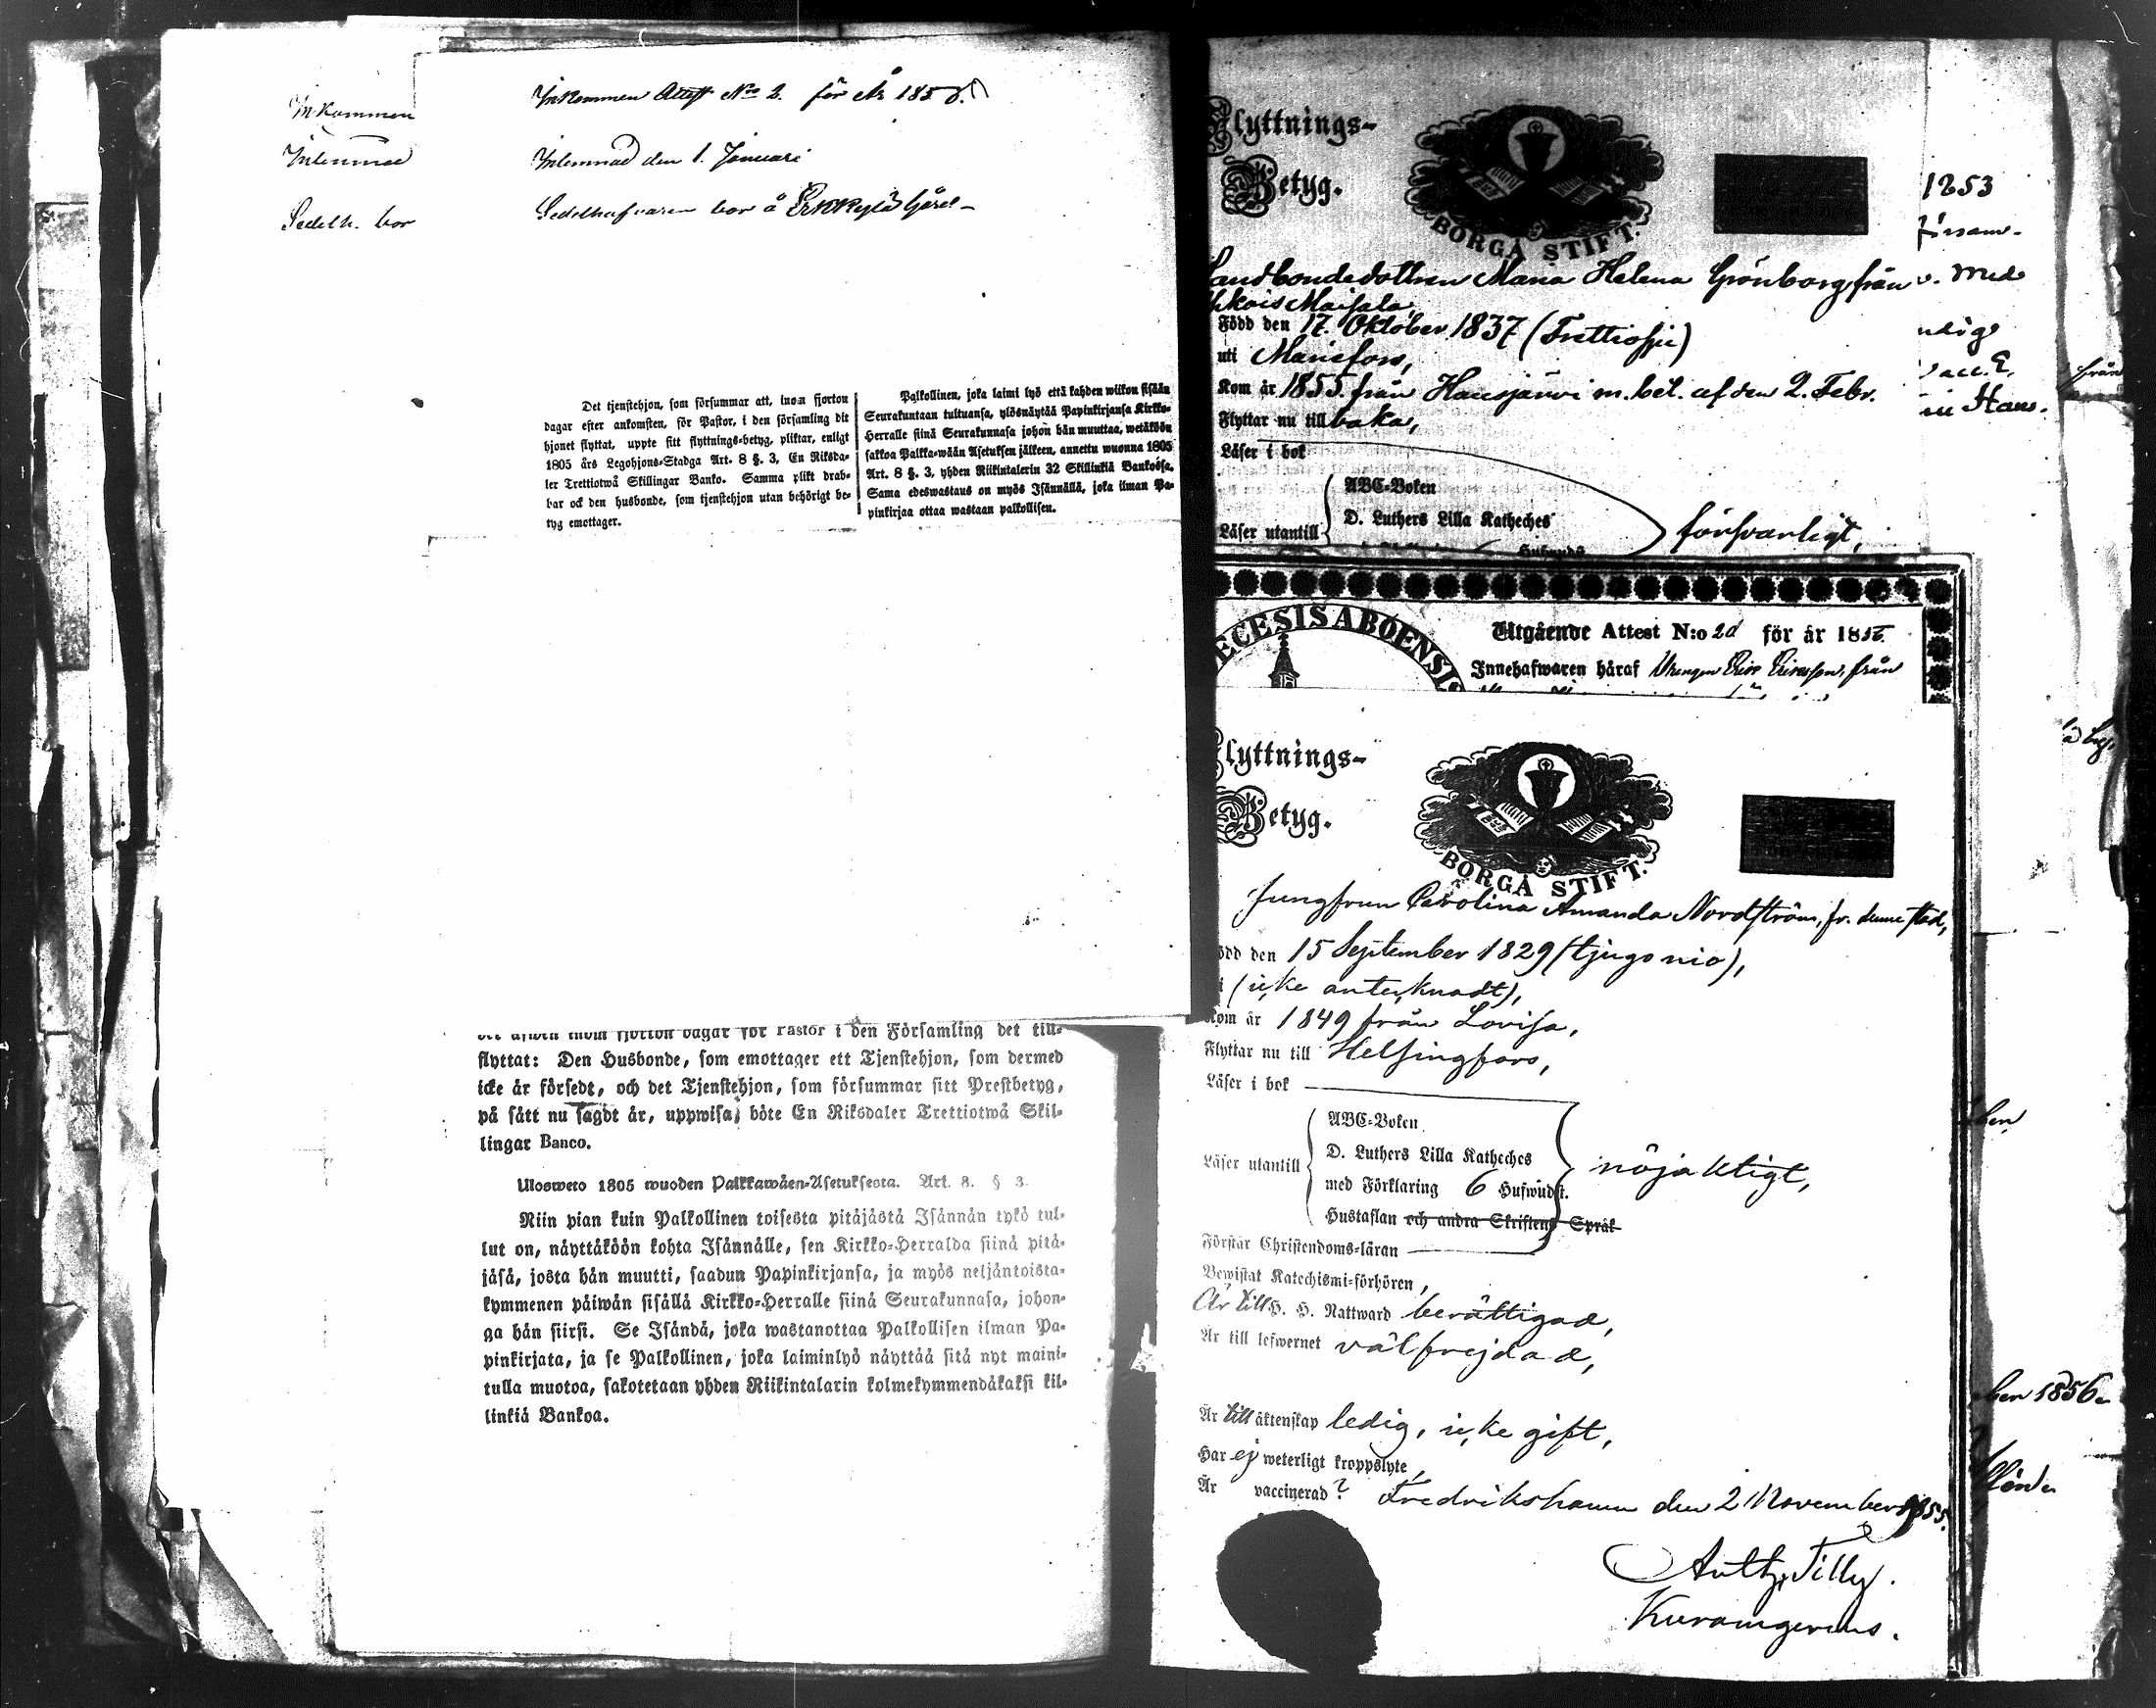 Inkommen
Inlemnad
Sedelh. bor
Inkommen Attest No 2. för År 185
Inlemnad den 1. Januari
Sedelhafvaren bor å
Det tjenstehjon, som försummar att, inom fjorton
dagar efter ankomsten, för Pastor, i den församling dit
hjonet flyttat, uppte sitt flyttnings-betyg, pliktar, enligt
1805 års Legohjons-Stadga Art. 8 §. 3, En Riksda-
ler Trettiotwå Skillingar Banko. Samma plikt drab-
bar ock den husbonde, som tjenstehjon utan behörigt be-
tyg emottager.
Palkollinen, joka laimi lyö että kahden wiikon sisään
Seurakuntaan tultuansa, ylösnäytää Papinkirjansa Kirkko-
Herralle siinä Seurakunnasa johon hän muuttaa, wetäköön
sakkoa Palkka-wään Asetuksen jälkeen, annettu wuonna 1805
Art. 8 §. 3, yhden Riikintalerin 32 Skillinkiä Bankossa,
Sama edeswastaus on myös Isännällä, joka ilman Pa-
pinkirjaa ottaa wastaan palkollisen.
inom fjorton dagar för Pastor i den Församling det till-
flyttat: Den Husbonde, som emottager ett Tjenstehjon, som dermed
icke är försedt, och det Tjenstehjon, som försummar sitt Prestbetyg,
på sätt nu sagdt är, uppwisa, böte En Riksdaler Trettiotwå Skil-
lingar Banco.
Ulosweto 1805 wuoden Palkkawäen-Asetuksesta. Art. 8. § 3.
Niin pian kuin Palkollinen toisesta pitäjästä Isännän tykö tul-
lut on, näyttäköön kohta Isännälle, sen Kirkko-Herralda siinä pitä-
jäsä, josta hän muutti, saadun Papinkirjansa, ja myös neljäntoista-
kymmenen päiwän sisällä Kirkko-Herralle siinä Seurakunnasa, johon-
ga hän siirsi. Se Isändä, joka wastanottaa Palkollisen ilman Pa-
pinkirjata, ja se Palkollinen, joka laiminlyö näyttää sitä nyt maini-
tulla muotoa, sakotetaan yhden Riikintalarin kolmekymmendäkaksi kil-
linkiä Bankoa.
Flyttnings-
Betyg.
BORGÅ STIFT.
Landbondedottren Maria Helena Grönborg, från
Född den 17. Oktober 1837 (Trettiosju)
uti Mariefors,
Kom år 1855. från Hausjärvi m. bet. af den 2. Febr.
Flyttar nu till baka,
Läser i bok
ABC-Boken
D. Luthers Lilla Katheches
Läser utantill
försvarligt,
1853
försam-
v. med
vacc. E,
från
ECESIS ABOENSIS
Utgående Attest N:o 2d för år 185
Innehafwaren häraf Drengen Eric Ericsson, från
Flyttnings-
Betyg.
BORGÅ STIFT.
Jungfrun Carolina Amanda Nordström, fr. denne stad,
ödd den 15 September 1829 (tjugo nio),
i (icke antecknadt),
Kom år 1849 från Lovisa,
Flyttar nu till Helsingfors,
Läser i bok
ABC-Boken
D. Luthers Lilla Katheches
Läser utantill
med Förklaring 6 Hufwudst.
nöjaktigt,
Hustaflan och andra Skriftens Språk
Förstår Christendoms-läran
Bewistat Katechismi-förhören,
Är till H. H. Nattward berättigad,
Är till lefwernet välfrejdad,
Är till äktenskap ledig, icke gift,
Har ej weterligt kroppslyte,
Är vaccinerad? Fredrikshamn den 2 November 1855.
Anth. Tilly.
ben 1856